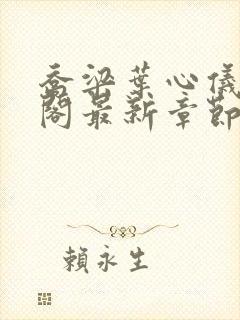 喬梁葉心儀
閣最新章節
賴永生